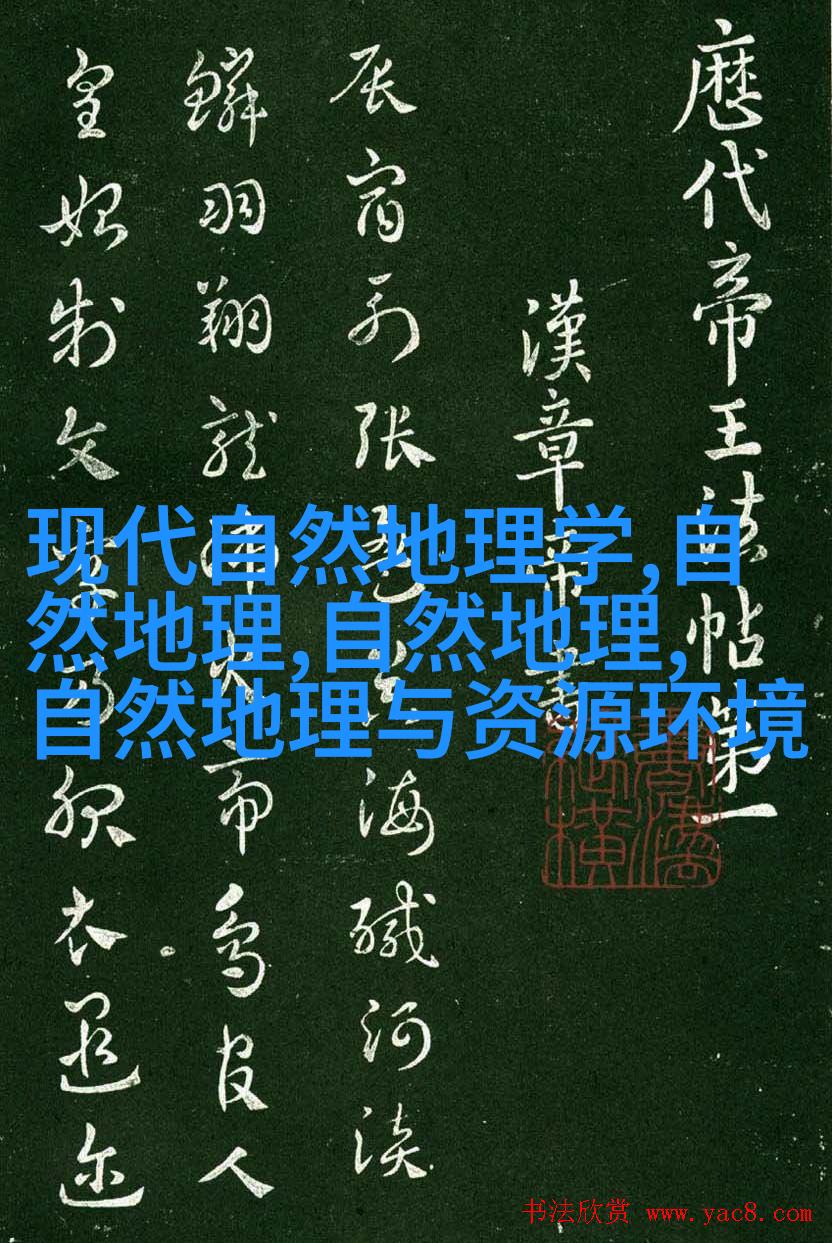 歷代帝王法帖第一
漢章帝書
辰宿列張海鹹河淡
鱗羽翔龍師火帝鳥官人
皇始制文字乃服衣遐迩
现代自然地理学,自
然地理,自然地理,
自然地理与资源环境
书法欣赏 www.yac8.com